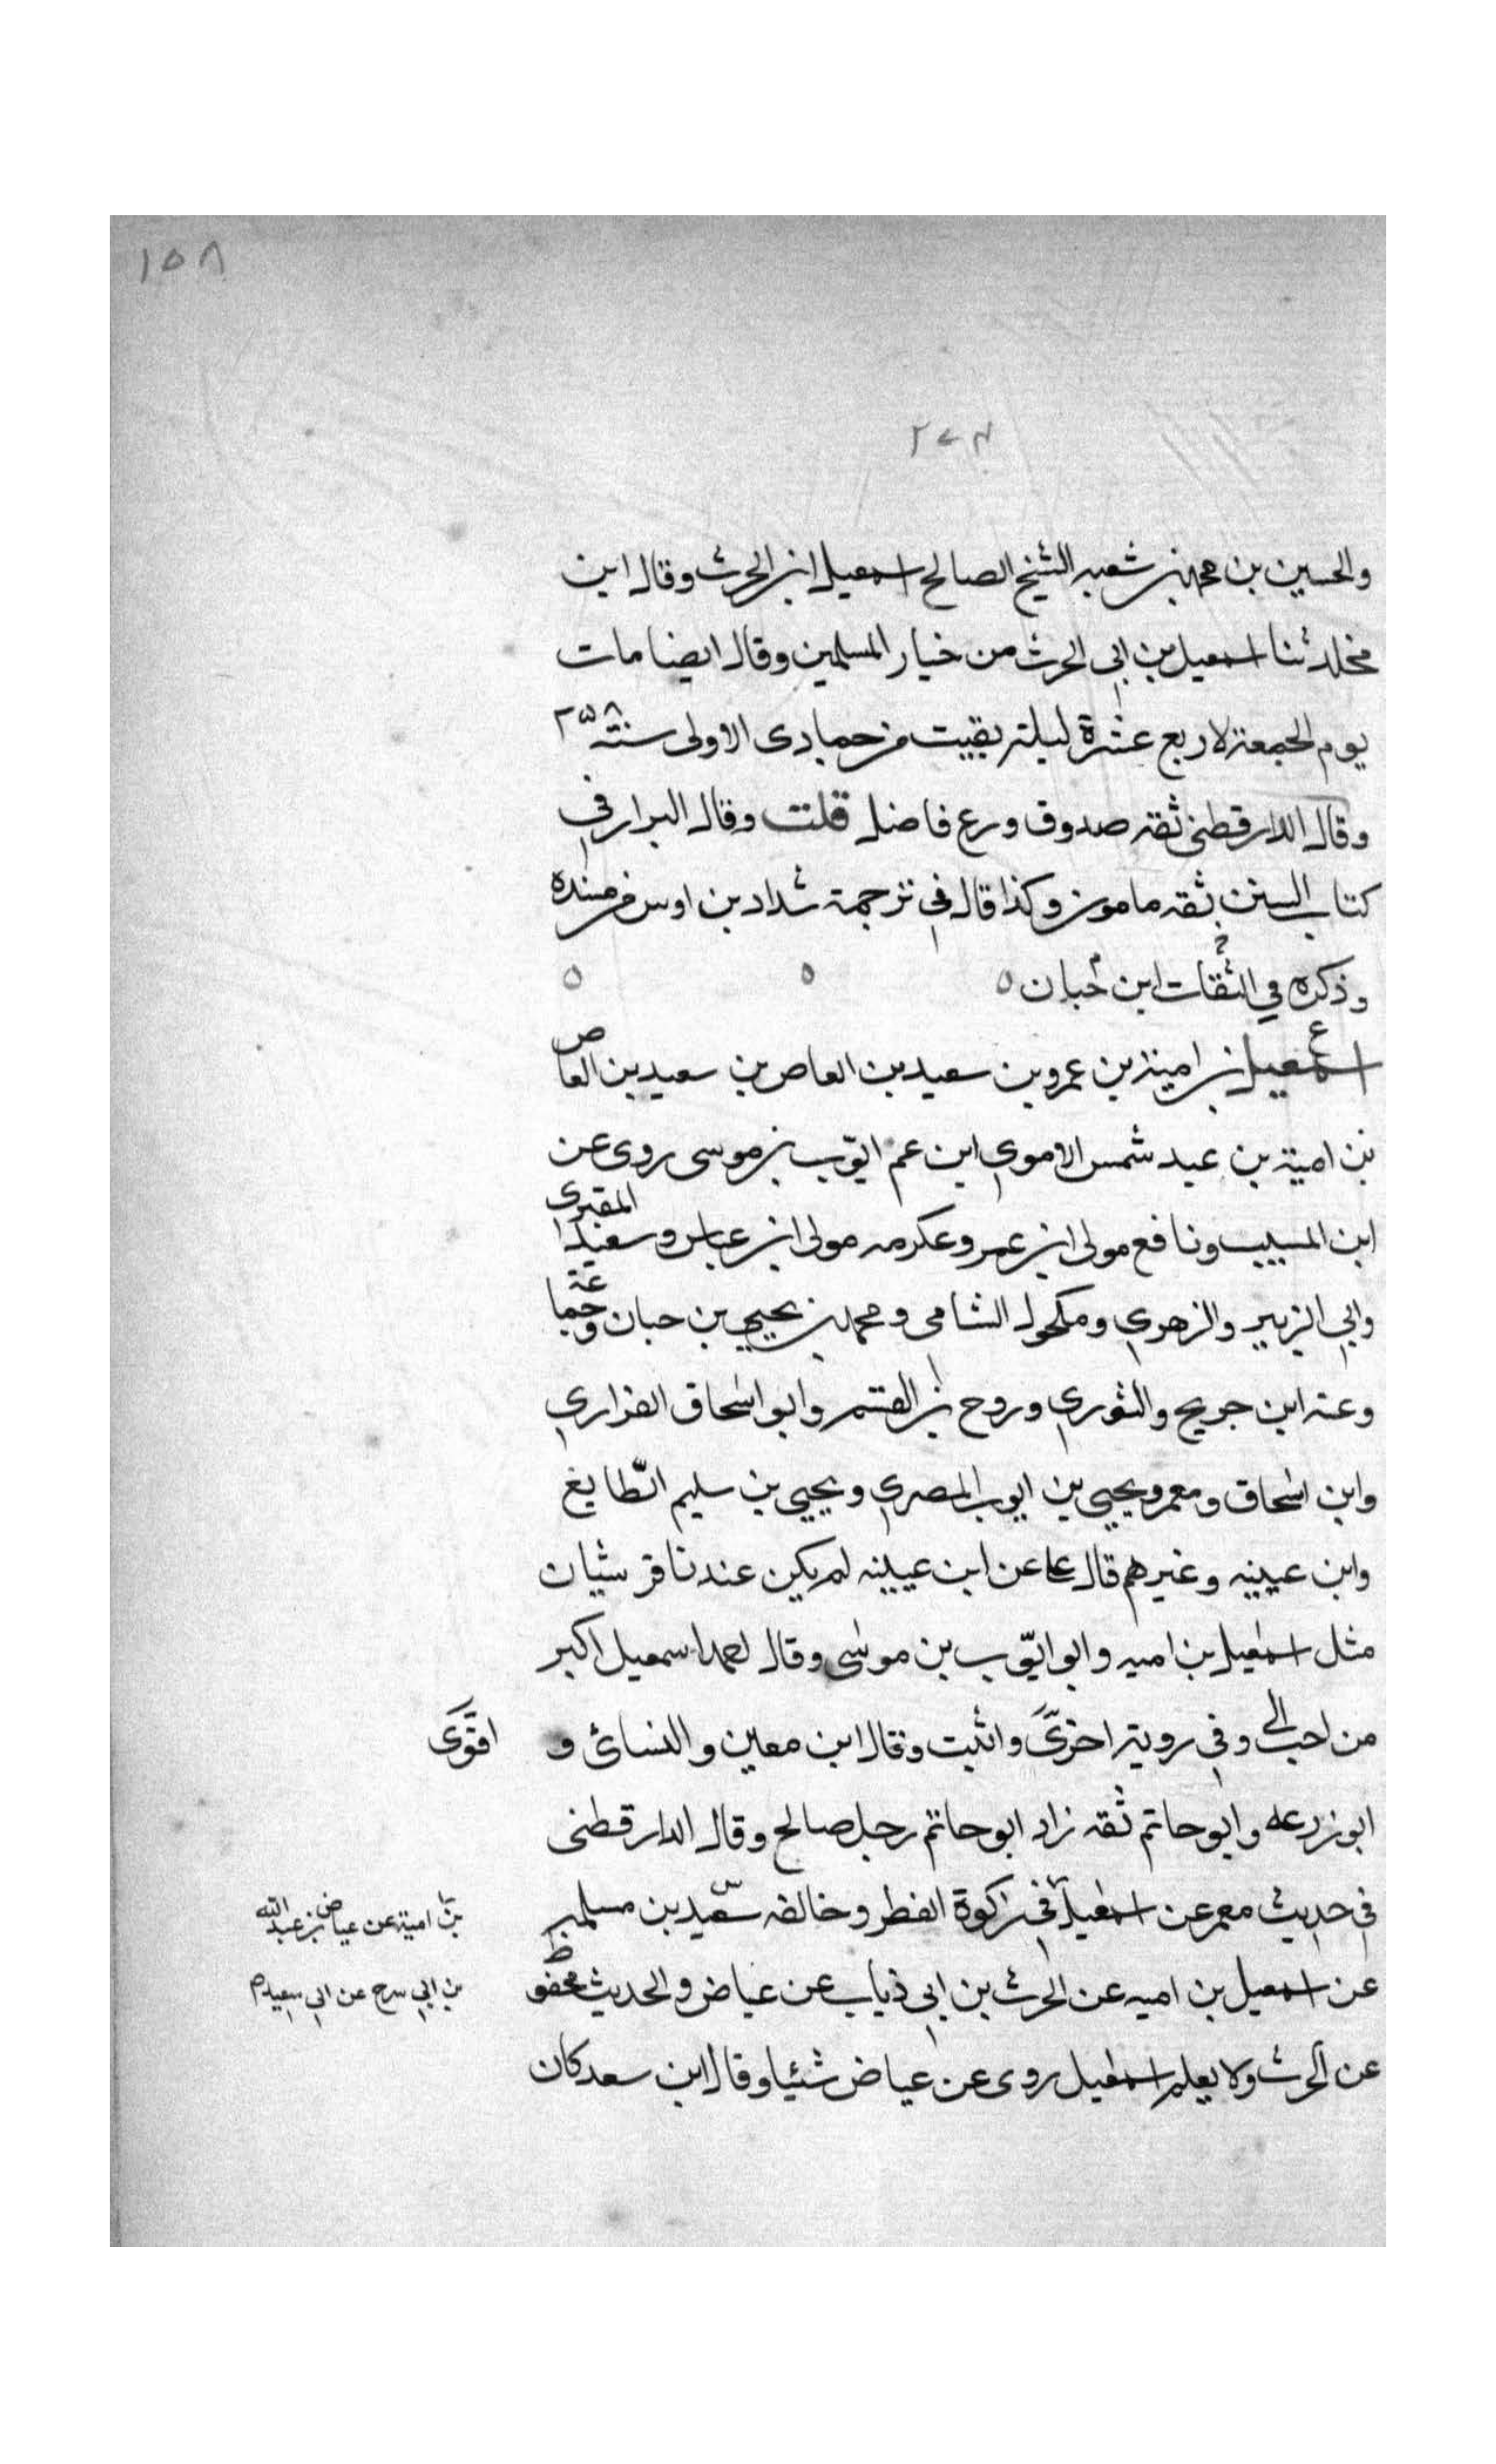 ١٥٨
٢٧٤
والحسين بن محمد بن شعبه الشيخ الصالح اسمعيل ابن الحرث وقال ابن
مخلد ثنا اسمعيل بن ابى الحرث من خيار المسلمين وقال ايضا مات
يوم الجمعة لاربع عشرة ليلة بقيت من جمادى الاولى سنة ٢٥٨
وقال الدارقطنى ثقة صدوق ورع فاضل قلت وقال البزار في
كتاب السنن ثقه مامون وكذا قال في ترجمة شداد بن اوس من مسنده
وذكره في الثقات ابن حبان ٥ ٥ ٥
ع
اسمعيل بن امية بن عمرو بن سعيد بن العاص بن سعيد بن العاص
بن امية بن عبد شمس الاموي ابن عم ايّوب بن موسى روى عن
ابن المسيب ونافع مولى ابن عمر وعكرمه مولى ابن عباس وسعيد المقبرى
وابي الزبير والزهري ومكحول الشامى ومحمد بن يحيى بن حبان وجماعة
وعنه ابن جريج والثوري وروح بن القسم وابو اسحاق الفزاري
وابن اسحاق ومعمر ويحيى بن ايوب المصري ويحيى بن سليم الطايفي
وابن عيينه وغيرهم قال على عن ابن عيينه لم يكن عندنا قرشيان
مثل اسمعيل بن اميه وابو ايّوب بن موسى وقال احمد اسمعيل اكبر
من احب الي وفي روية اخرى واثبت وقال ابن معين والنسائ و
اقوى
ابو زرعه وابو حاتم ثقه زاد ابو حاتم رجل صالح وقال الدارقطنى
في حديث معمر عن اسمعيل في زكوة الفطر وخالفه سعيد بن مسلمه
بن امية عن عياض بن عبد الله
عن اسمعيل بن اميه عن الحرث بن ابي ذياب عن عياض والحديث محفوظ
بن ابي سرح عن ابي سعيد م
عن الحرث ولا يعلم اسمعيل روى عن عياض شئيا وقال ابن سعد كان